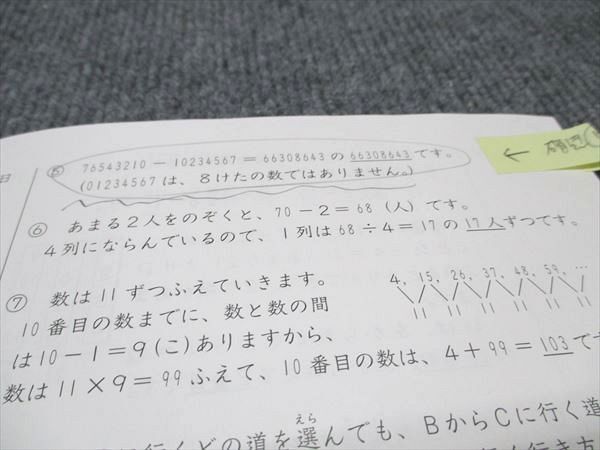 日
⑤ 76543210 − 10234567 = 66308643 の 66308643 です。
(01234567 は、8けたの数ではありません。)
←
⑥ あまる2人をのぞくと、70 − 2 = 68 (人) です。
4列にならんでいるので、1列は 68 ÷ 4 = 17 の 17人ずつです。
⑦ 数は 11 ずつふえていきます。
4, 15, 26, 37, 48, 59, …
11 11 11 11 11 11
10番目の数までに、数と数の間
は 10 − 1 = 9 (こ) ありますから、
数は 11 × 9 = 99 ふえて、10番目の数は、4 + 99 = 103 で
えら
行くどの道を選んでも、BからCに行く道